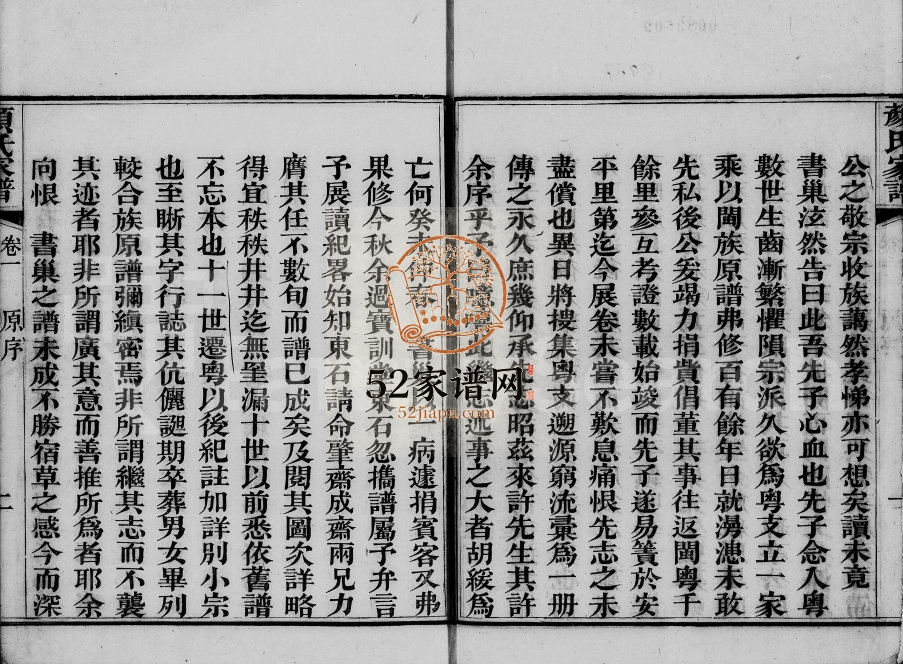 公之敬宗收族藹然孝悌亦可想矣讀未竟
書巢泫然告曰此吾先子心血也先子念入粵
數世生齒漸繁懼隕宗派久欲爲粵支立一家
乘以閩族原譜弗修百有餘年日就漫漶未敢
先私後公爰竭力捐貲倡董其事往返閩粵千
餘里參互考證數載始竣而先子遂易簀於安
平里第迄今展卷未嘗不歎息痛恨先志之未
盡償也異日將搜集粵支遡源窮流彙爲一册
傳之永久庶幾仰承 昭茲來許先生其許
余序乎予 此 述事之大者胡緩爲
亡何癸 春 一病遽捐賓客又弗
果修今秋余過寶訓 東石忽攜譜屬予弁言
予展讀紀畧始知東石請命肇齋成齋兩兄力
膺其任不數旬而譜已成矣及閱其圖次詳略
得宜秩秩井井迄無罣漏十世以前悉依舊譜
不忘本也十一世遷粵以後紀註加詳別小宗
也至晰其字行誌其伉儷誕期卒葬男女畢列
較合族原譜彌縝密焉非所謂繼其志而不襲
其迹者耶非所謂廣其意而善推所爲者耶余
向恨 書巢之譜未成不勝宿草之感今而深
顏氏家譜
卷一
原序
二
52家谱网
52jiapu.com